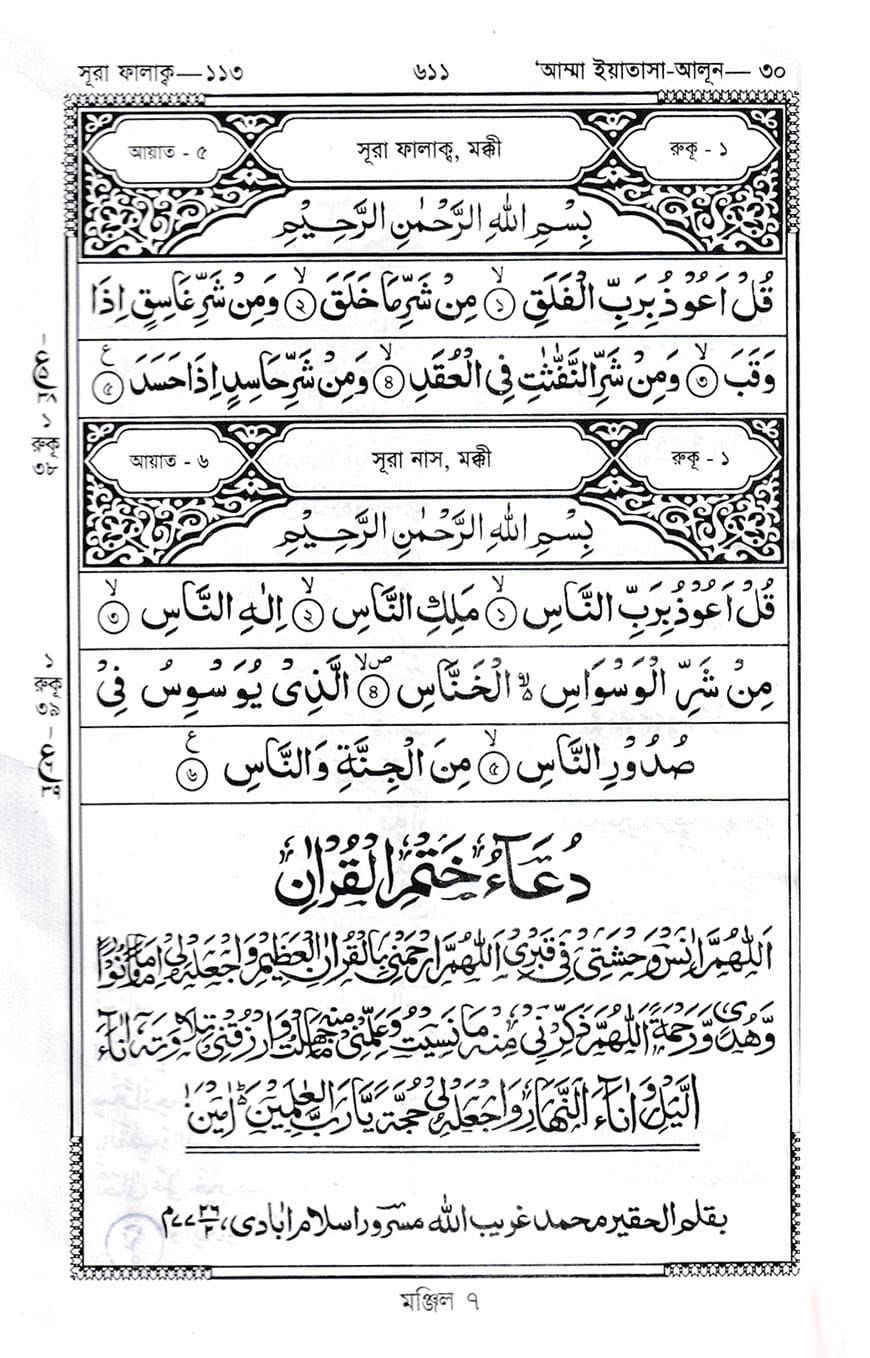 সূরা ফালাক্ব—১১৩ ৬১১ 'আম্মা ইয়াতাসা-আলূন— ৩০
আয়াত - ৫ সূরা ফালাক্ব, মক্কী রুকূ - ১
بِسْمِ اللهِ الرَّحْمٰنِ الرَّحِيْمِ
قُلْ اَعُوْذُ بِرَبِّ الْفَلَقِ ۙ ১ مِنْ شَرِّ مَا خَلَقَ ۙ ২ وَمِنْ شَرِّ غَاسِقٍ اِذَا
وَقَبَ ۙ ৩ وَمِنْ شَرِّ النَّفّٰثٰتِ فِى الْعُقَدِ ۙ ৪ وَمِنْ شَرِّ حَاسِدٍ اِذَا حَسَدَ ع ৫
১ রুকূ ৩৮
আয়াত - ৬ সূরা নাস, মক্কী রুকূ - ১
بِسْمِ اللهِ الرَّحْمٰنِ الرَّحِيْمِ
قُلْ اَعُوْذُ بِرَبِّ النَّاسِ ۙ ১ مَلِكِ النَّاسِ ۙ ২ اِلٰهِ النَّاسِ ۙ ৩
مِنْ شَرِّ الْوَسْوَاسِ ۙ الْخَنَّاسِ ৪ صلا الَّذِىْ يُوَسْوِسُ فِىْ
১ রুকূ ৩৯
صُدُوْرِ النَّاسِ ۙ ৫ مِنَ الْجِنَّةِ وَالنَّاسِ ع ৬
دُعَآءُ خَتْمِ الْقُرْاٰنِ
اَللّٰهُمَّ اٰنِسْ وَحْشَتِىْ فِىْ قَبْرِىْ اَللّٰهُمَّ ارْحَمْنِىْ بِالْقُرْاٰنِ الْعَظِيْمِ وَاجْعَلْهُ لِىْ اِمَامًا وَّنُوْرًا
وَّهُدًى وَّرَحْمَةً اَللّٰهُمَّ ذَكِّرْنِىْ مِنْهُ مَا نَسِيْتُ وَعَلِّمْنِىْ مِنْهُ مَا جَهِلْتُ وَارْزُقْنِىْ تِلَاوَتَهٗ اٰنَآءَ
الَّيْلِ وَاٰنَآءَ النَّهَارِ وَاجْعَلْهُ لِىْ حُجَّةً يَّا رَبَّ الْعٰلَمِيْنَ ؕ اٰمِيْنَ!
بقلم الحقير محمد غريب الله مسرور اسلام ابادى، ٢٦/٢ ٧٧م
মঞ্জিল ৭